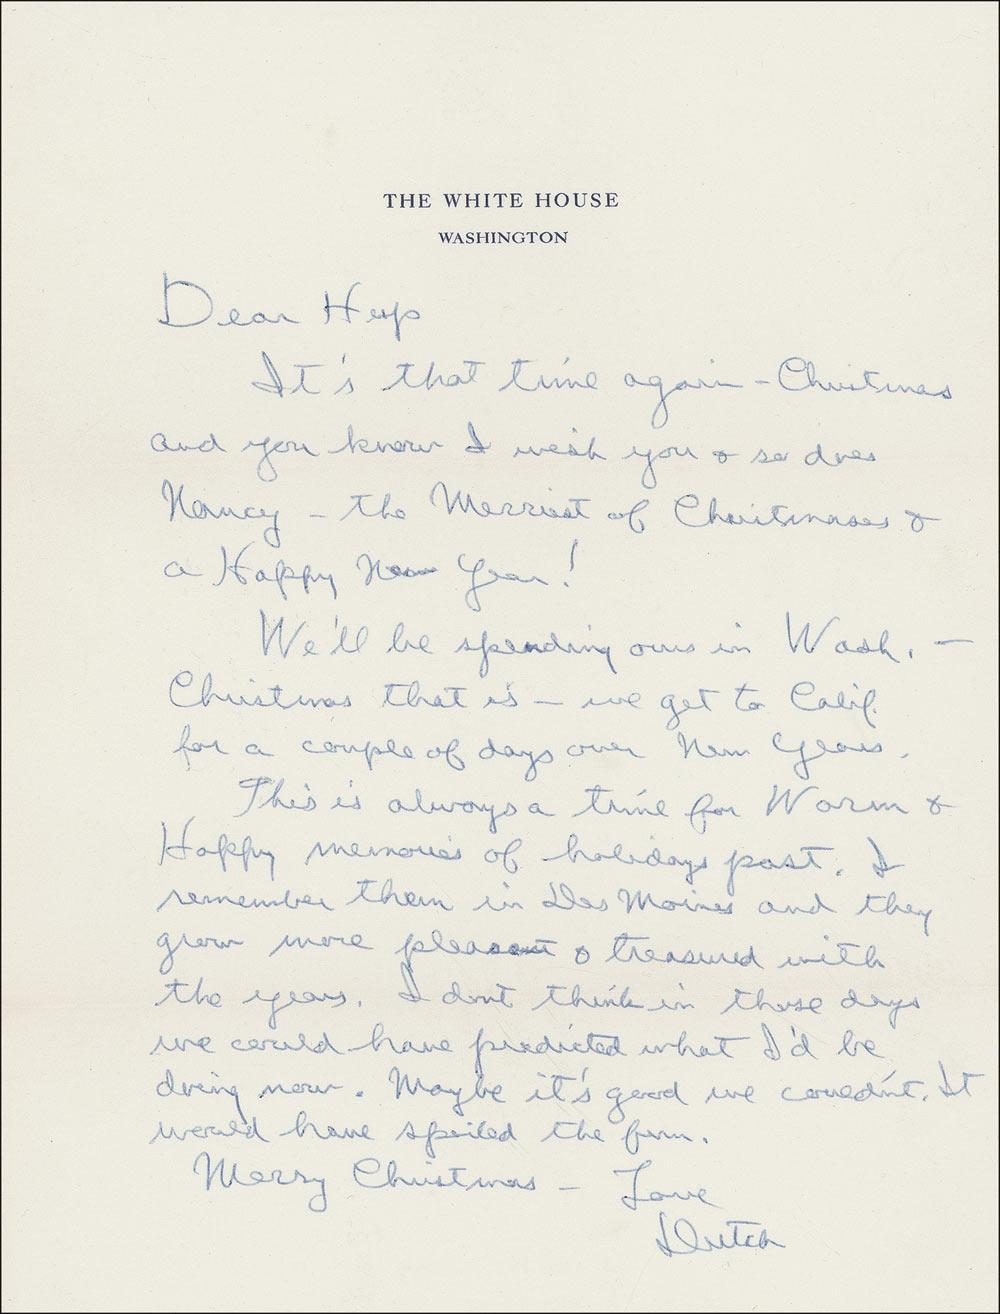 THE WHITE HOUSE
WASHINGTON
Dear Hup
It's that time again - Christmas
and you know I wish you & so does
Nancy - the Merriest of Christmases &
a Happy New Year!
We'll be spending ours in Wash. -
Christmas that is - we get to Calif.
for a couple of days over New Years.
This is always a time for Warm &
Happy memories of holidays past. I
remember them in Des Moines and they
grow more pleasant & treasured with
the years. I dont think in those days
we could have predicted what I'd be
doing now. Maybe it's good we couldn't. It
would have spoiled the fun.
Merry Christmas - Love
Dutch